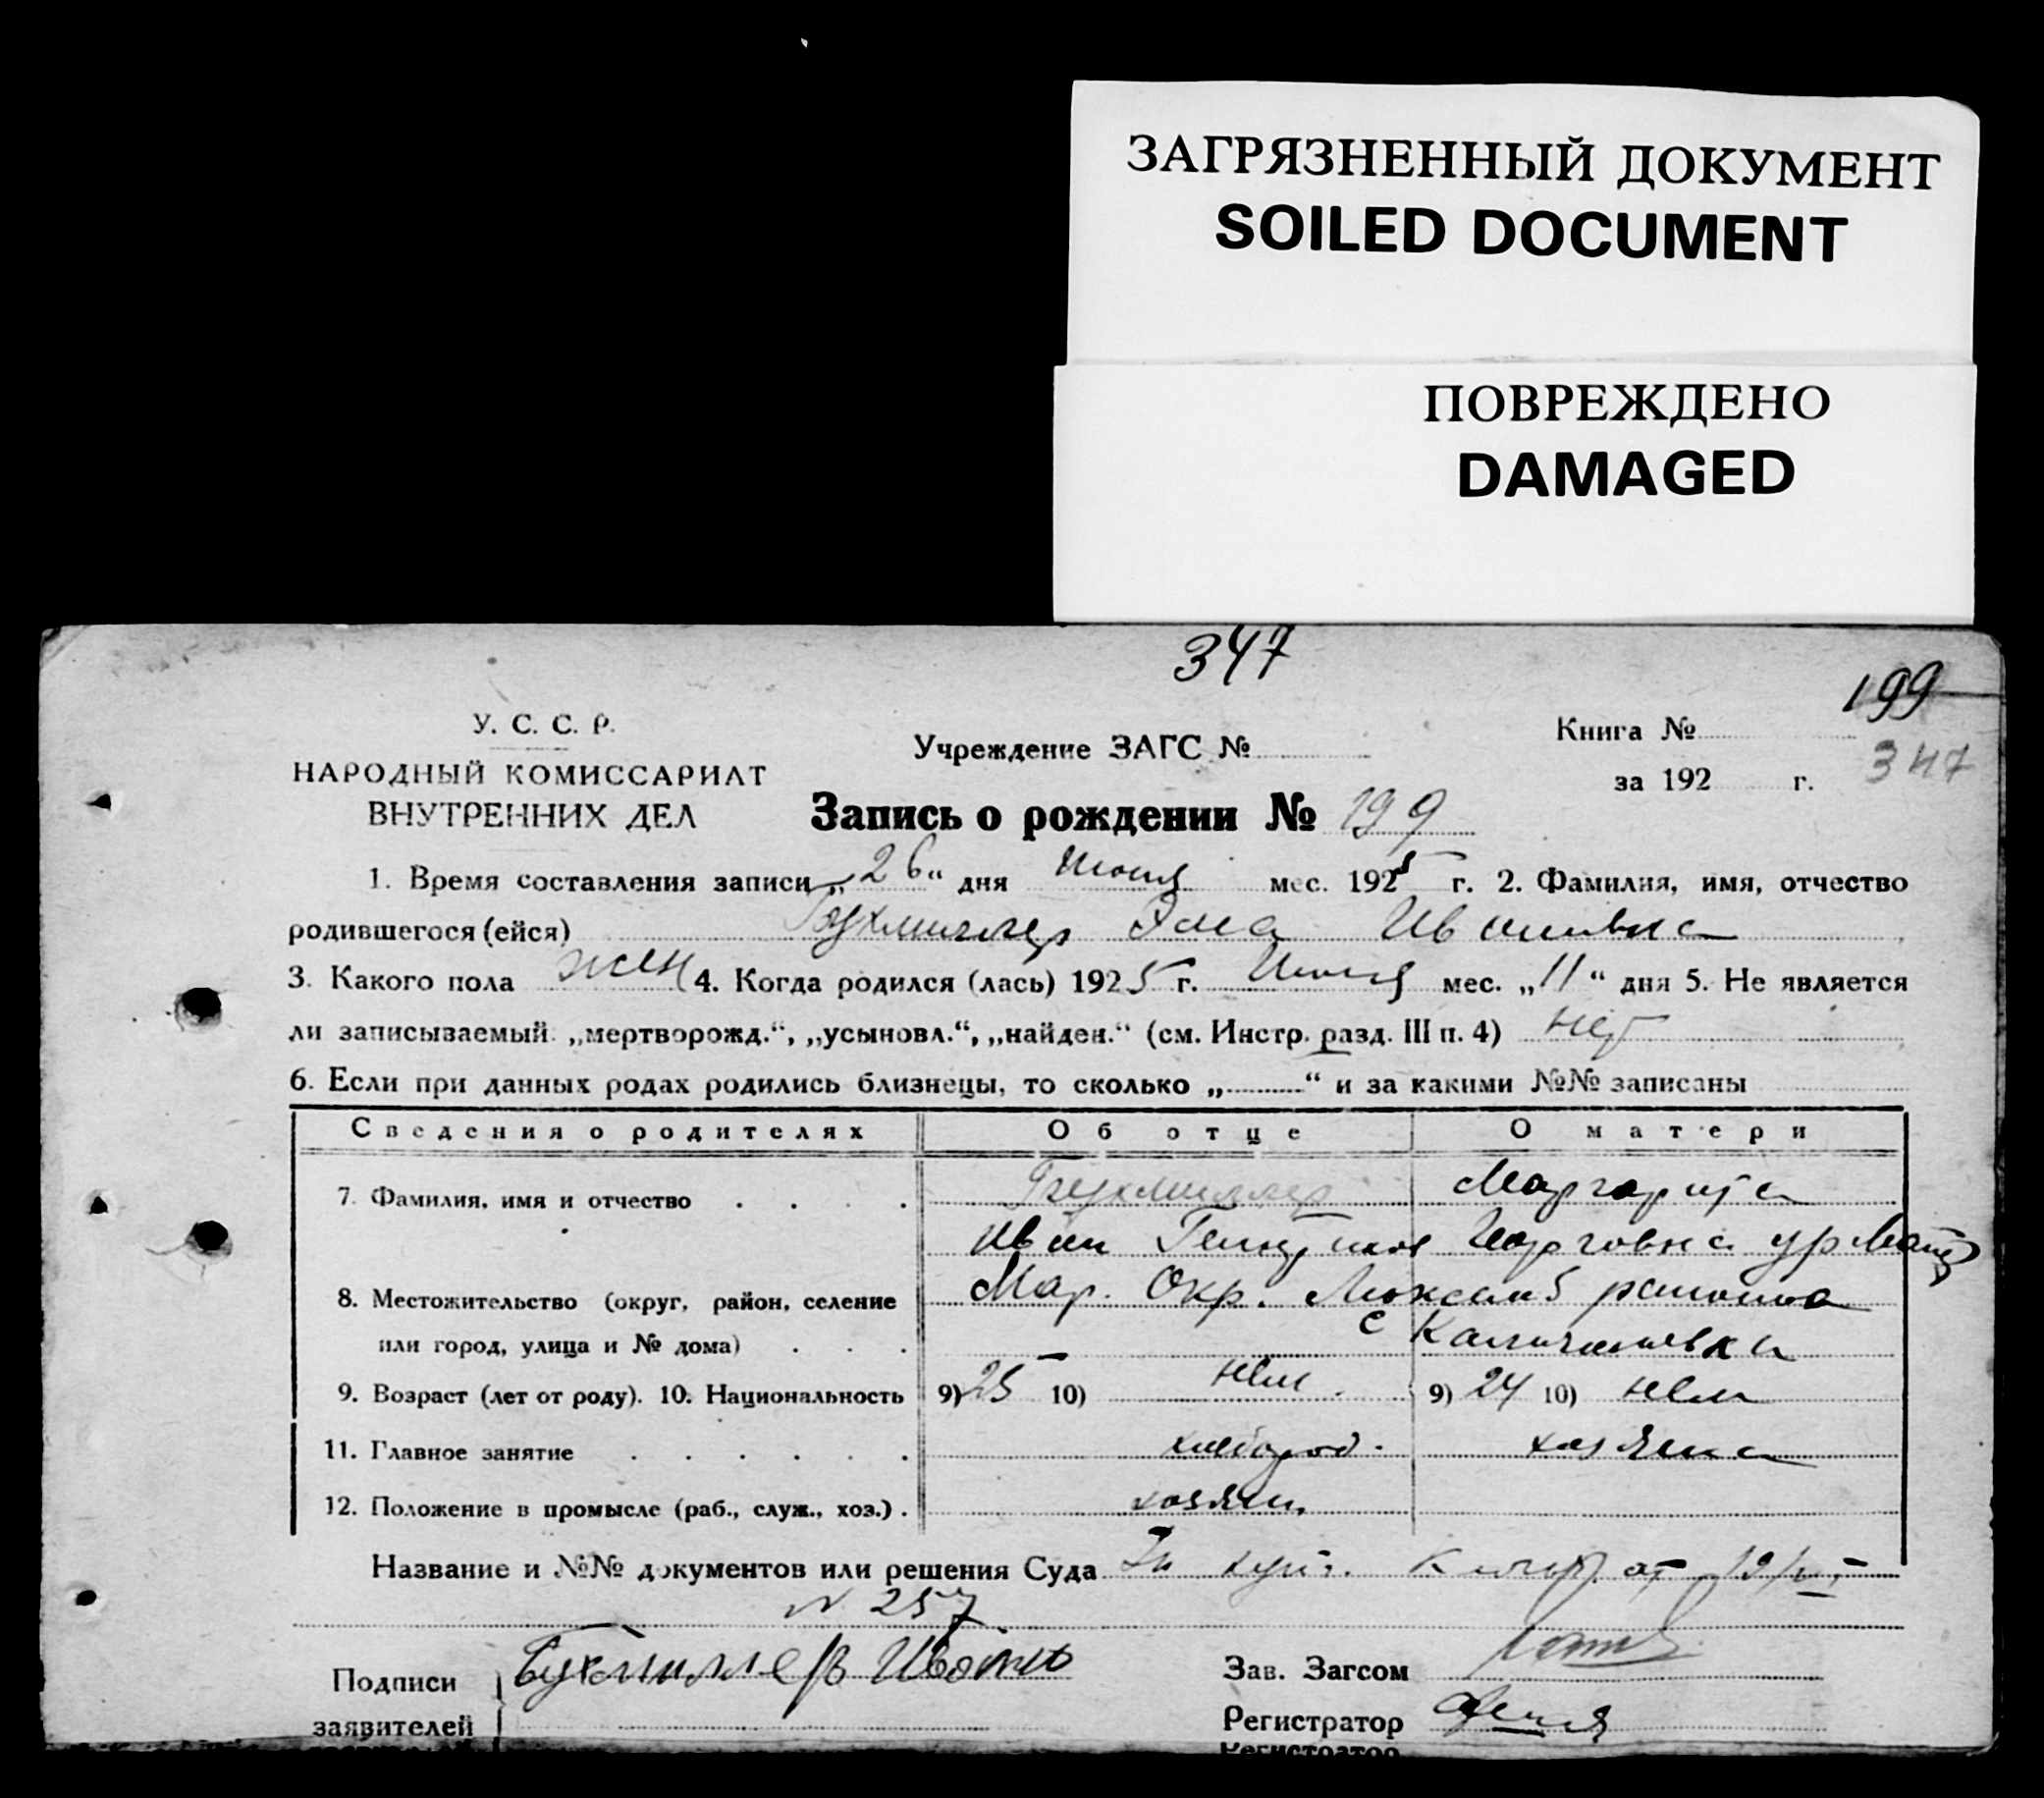 ЗАГРЯЗНЕННЫЙ ДОКУМЕНТ
SOILED DOCUMENT
ПОВРЕЖДЕНО
DAMAGED
347
199
У. С. С. Р.
Учреждение ЗАГС №
Книга №
347
НАРОДНЫЙ КОМИССАРИАТ
за 192 г.
ВНУТРЕННИХ ДЕЛ
Запись о рождении № 199
1. Время составления записи „26“ дня Июня мес. 1925 г. 2. Фамилия, имя, отчество
родившегося (ейся) Бухмиллер Эма Ивановна
3. Какого пола жен 4. Когда родился (лась) 1925 г. Июня мес. „11“ дня 5. Не является
ли записываемый „мертворожд.“, „усыновл.“, „найден.“ (см. Инстр. разд. III п. 4) нет
6. Если при данных родах родились близнецы, то сколько „ “ и за какими №№ записаны
Сведения о родителях Об отце О матери
7. Фамилия, имя и отчество Бухмиллер Маргарита
Иван Георговна ур
8. Местожительство (округ, район, селение Мар. Окр. Люксемб района
или город, улица и № дома) с
9. Возраст (лет от роду). 10. Национальность 9) 25 10) нем. 9) 24 10) нем
11. Главное занятие хлебороб. хозяйка
12. Положение в промысле (раб., служ., хоз.) хозяин
Название и №№ документов или решения Суда от 19/VI
N 257
Подписи Бухмиллеръ Иванъ Зав. Загсом
заявителей Регистратор
Регистратор